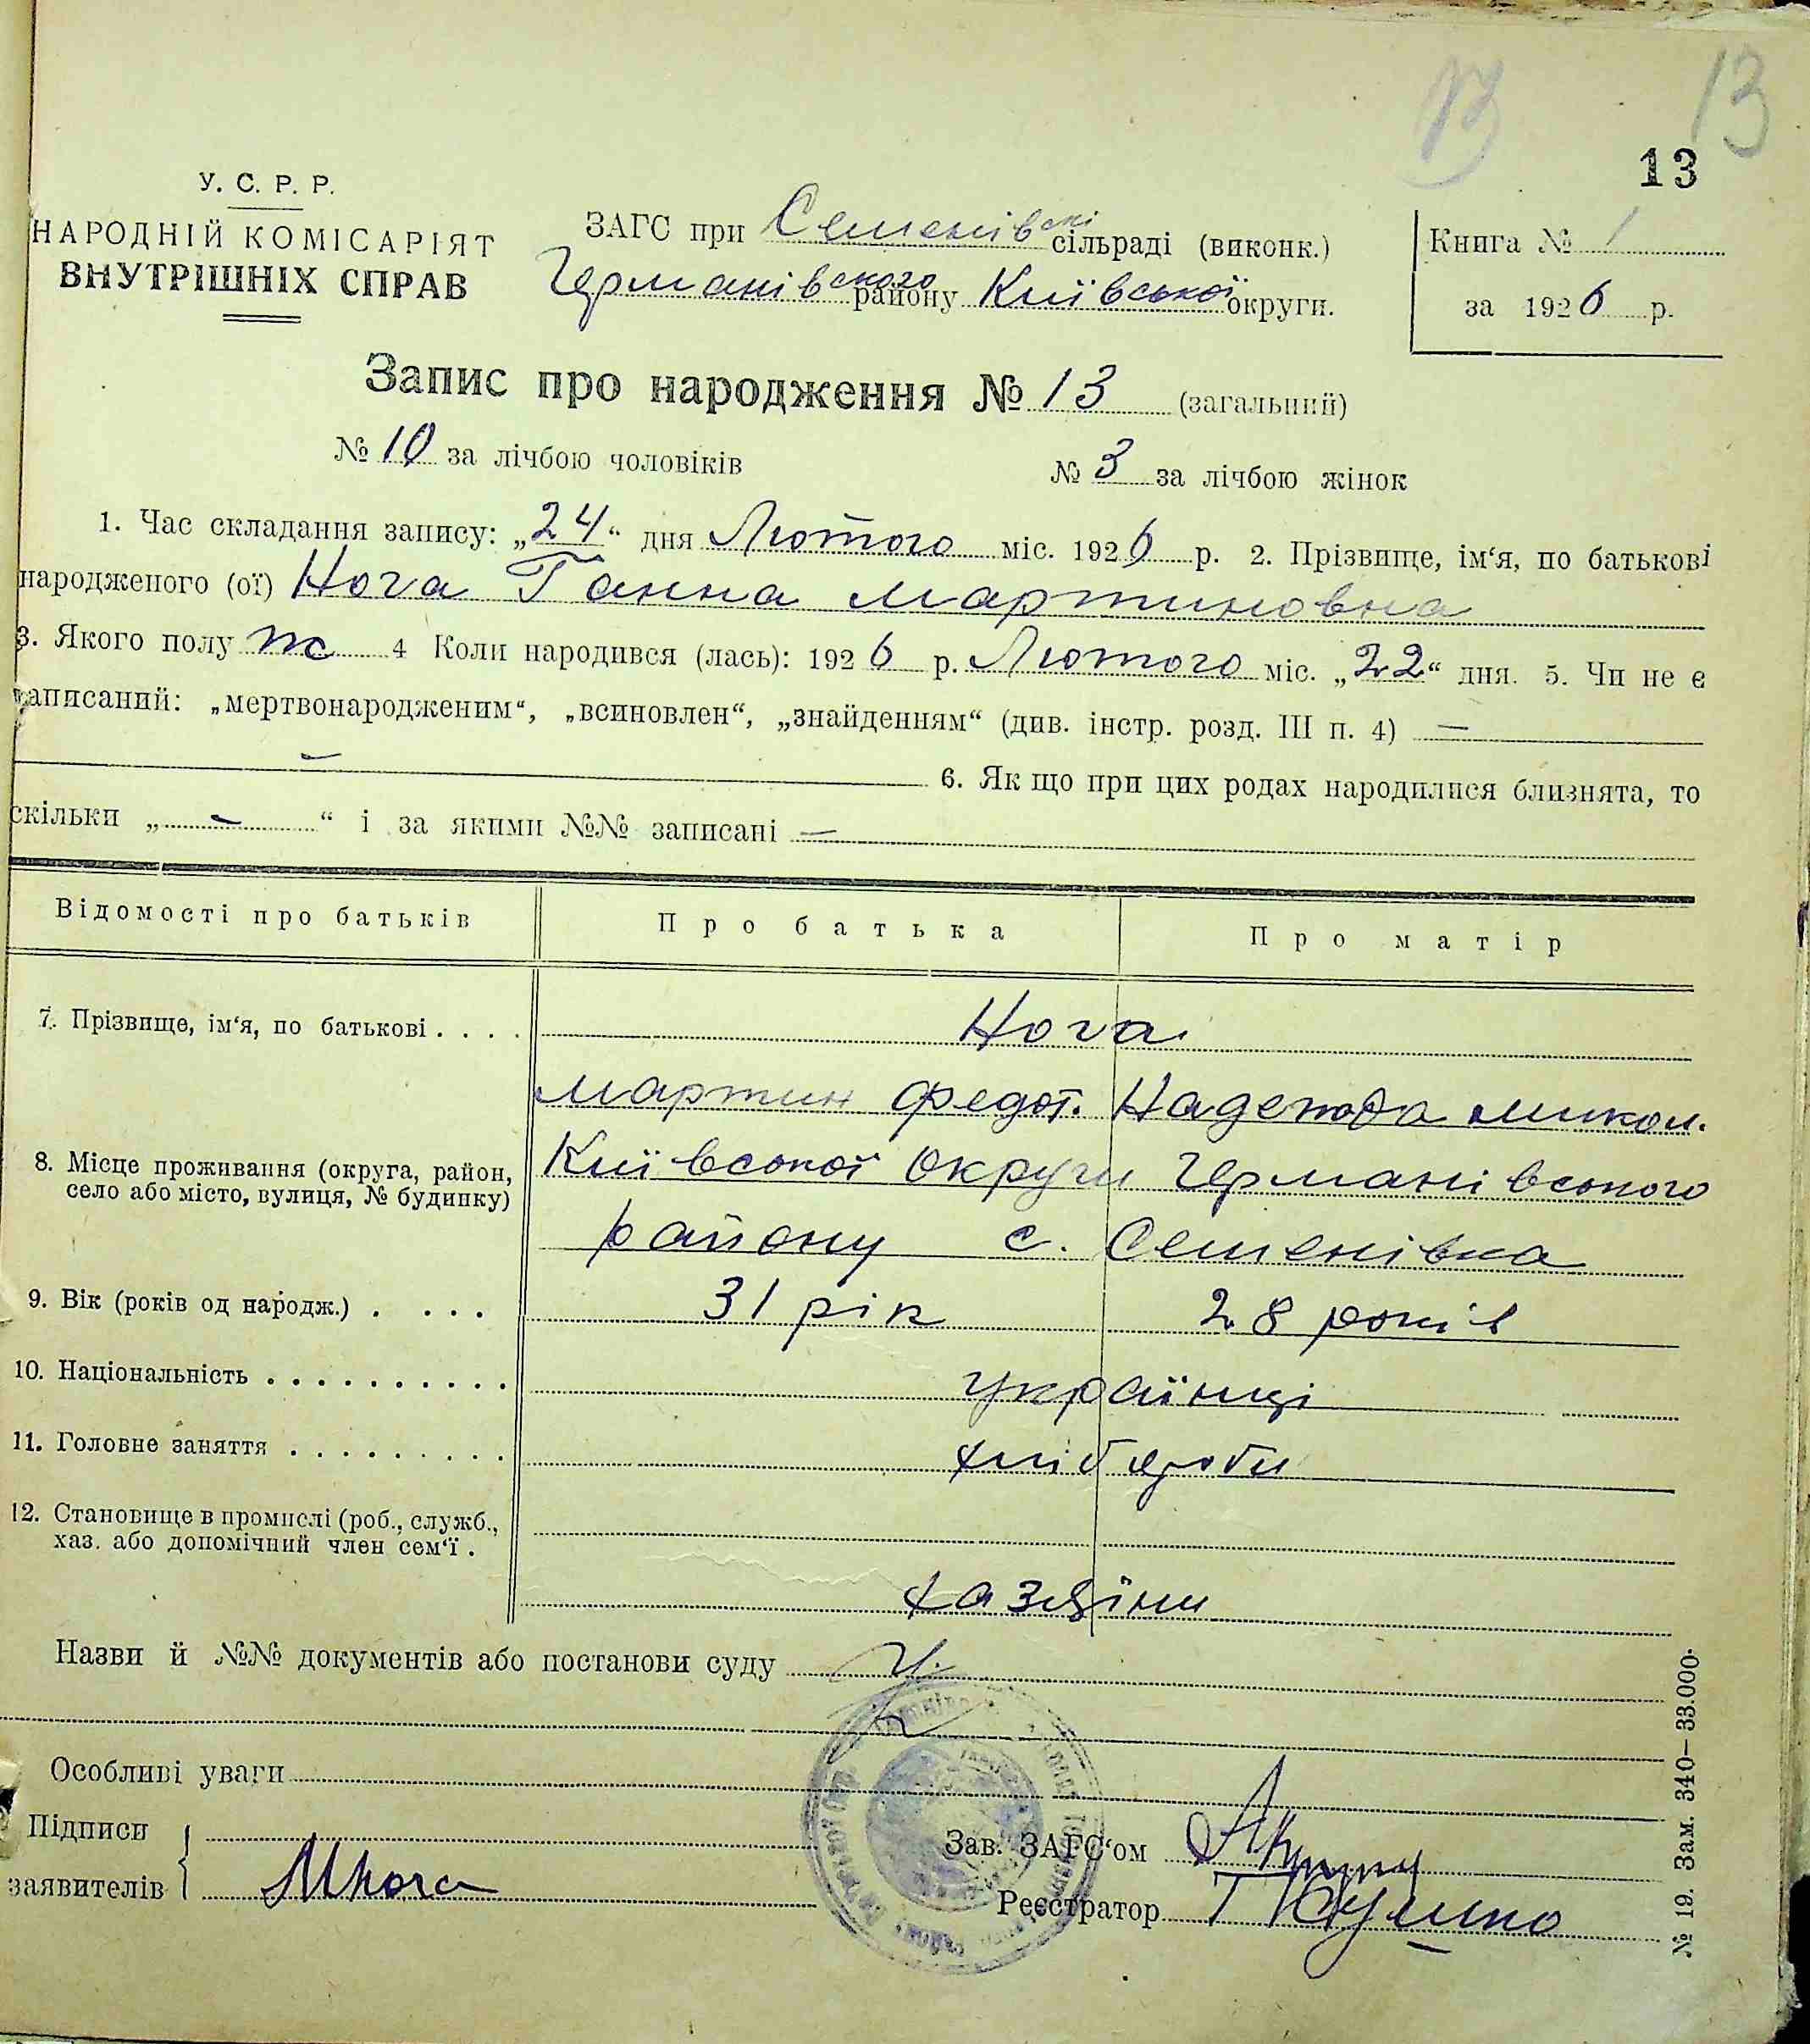 13
13
13
У. С. Р. Р.
НАРОДНІЙ КОМІСАРІЯТ
ВНУТРІШНІХ СПРАВ
ЗАГС при Семенівскі сільраді (виконк.)
Германівского району Київської округи.
Книга № 1
за 1926 р.
Запис про народження № 13 (загальний)
№ 10 за лічбою чоловіків № 3 за лічбою жінок
1. Час складання запису: „24“ дня Лютого міс. 1926 р. 2. Прізвище, ім‘я, по батькові
народженого (ої) Нога Ганна Мартиновна
3. Якого полу ж 4 Коли народився (лась): 1926 р. Лютого міс. „22“ дня. 5. Чи не є
записаний: „мертвонародженим“, „всиновлен“, „знайденням“ (див. інстр. розд. III п. 4) —
— 6. Як що при цих родах народилися близнята, то
скільки „ — “ і за якими №№ записані —
Відомості про батьків Про батька Про матір
7. Прізвище, ім‘я, по батькові . . . . Нога
Мартин Федот. Надежда Микол.
8. Місце проживання (округа, район, село або місто, вулиця, № будинку) Київської округи Германівського
району с. Семенівка
9. Вік (років од народж.) . . . . 31 рік 28 років
10. Національність . . . . . . . . . . українці
11. Головне заняття . . . . . . . . . хлібороби
12. Становище в промислі (роб., служб.,
хаз. або допомічний член сем‘ї .
хазяїни
Назви й №№ документів або постанови суду
Особливі уваги
Підписи
заявителів МНога
Зав. ЗАГС‘ом
Реєстратор Т Кушко
№ 19. Зам. 340—33.000.